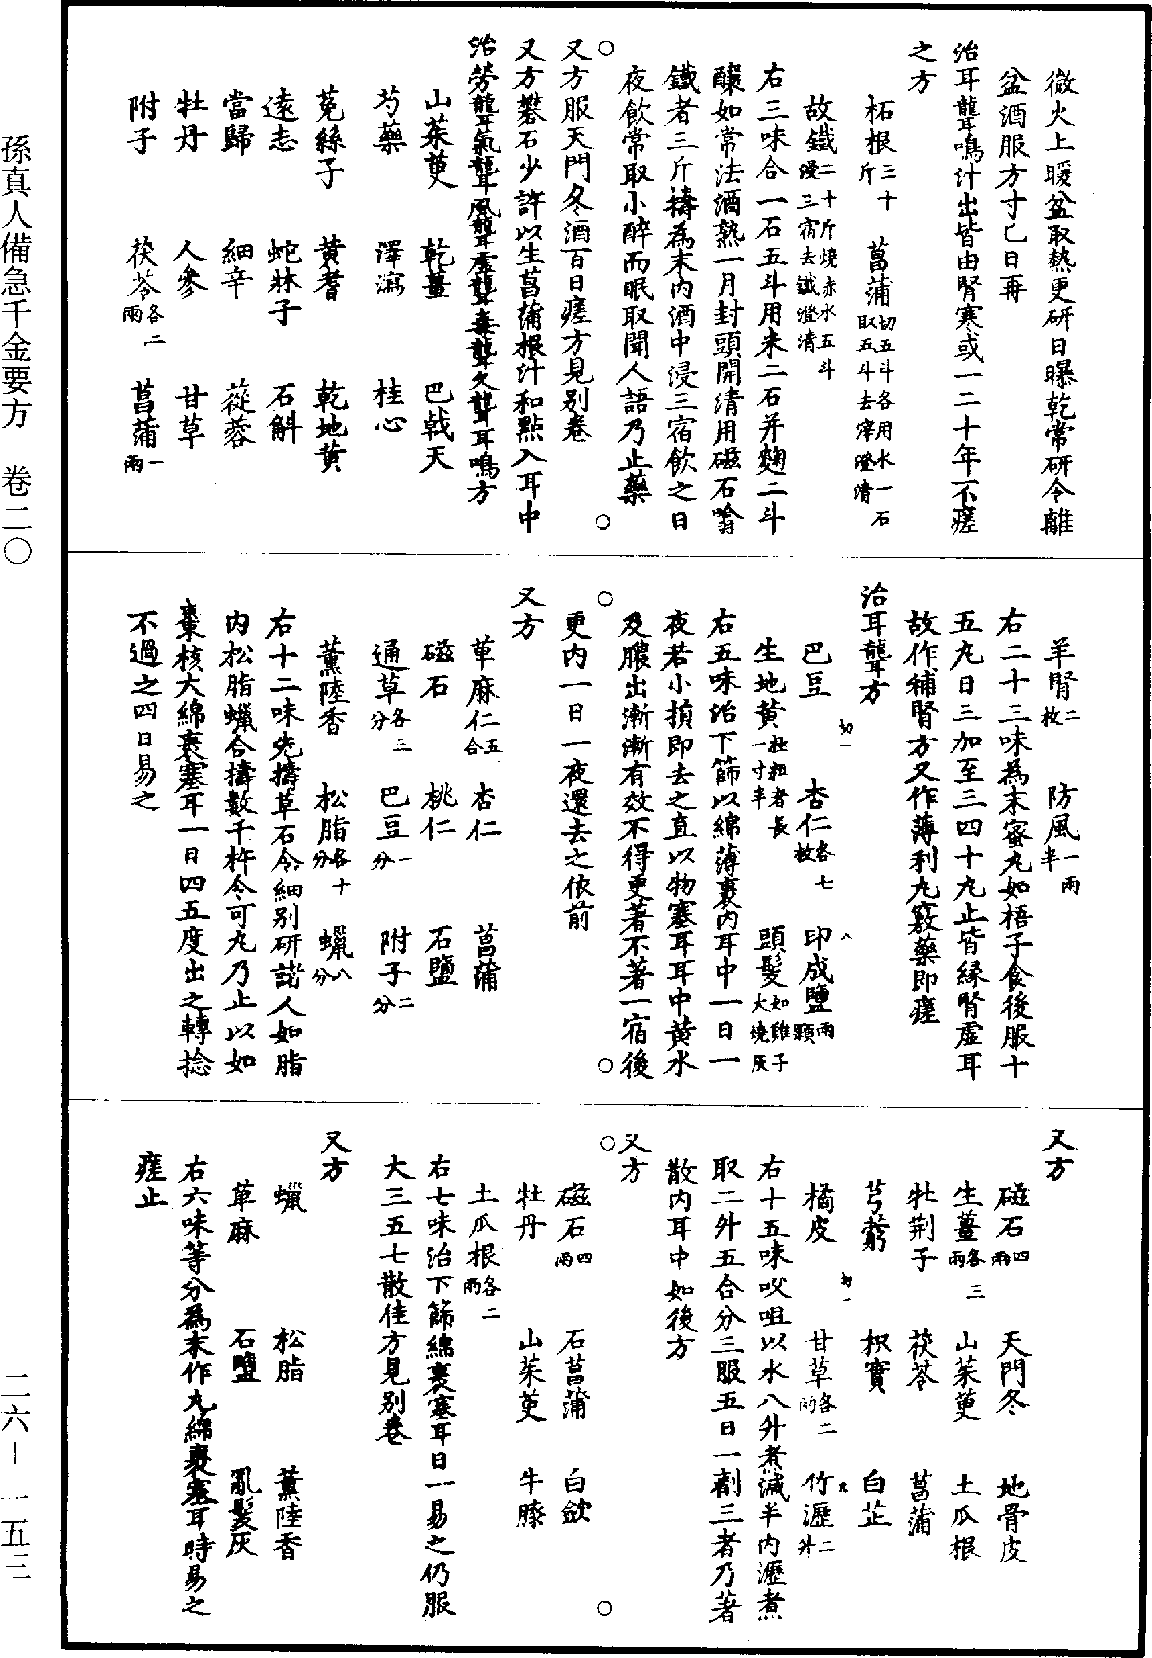 孫真人備急千金要方　卷二〇
二六－一五三
微火上暖盆取熱更研日曝乾常研令離
盆酒服方寸匕日再
治耳聾鳴汁出皆由腎寒或一二十年不瘥
之方
柘根三十斤　菖蒲切五斗各用水一石取五斗去滓澄清
故鐵二十斤燒赤水五斗浸三宿去鐵澄清
右三味合一石五斗用米二石并麴二斗
釀如常法酒熟一月封頭開清用磁石噏
鐵者三斤擣為末內酒中浸三宿飲之日
夜飲常取小醉而眠取聞人語乃止藥
又方服天門冬酒百日瘥方見別卷
又方礬石少許以生菖蒲根汁和點入耳中
治勞聾氣聾風聾虛聾毒聾久聾耳鳴方
山茱萸　乾薑　巴戟天
芍藥　澤瀉　桂心
菟絲子　黃耆　乾地黃
遠志　蛇牀子　石斛
當歸　細辛　蓯蓉
牡丹　人參　甘草
附子　茯苓各二兩　菖蒲一兩
羊腎二枚　防風一兩半
右二十三味為末蜜丸如梧子食後服十
五丸日三加至三四十丸止皆緣腎虛耳
故作補腎方又作薄利九竅藥即瘥
治耳聾方
巴豆　杏仁各七枚　印成鹽兩顆
生地黃極粗者長一寸半　頭髮如雞子大燒灰
右五味治下篩以綿薄裹內耳中一日一
夜若小損即去之直以物塞耳耳中黃水
及膿出漸漸有效不得更著不著一宿後
更內一日一夜還去之依前
又方
萆麻仁五合　杏仁　菖蒲
磁石　桃仁　石鹽
通草各三分　巴豆一分　附子二分
薰陸香　松脂各十分　蠟八分
右十二味先擣草石令細別研諸人如脂
內松脂蠟合擣數千杵令可丸乃止以如
棗核大綿裹塞耳一日四五度出之轉捻
不過之四日易之
又方
磁石四兩　天門冬　地骨皮
生薑各三兩　山茱萸　土瓜根
牡荊子　茯苓　菖蒲
芎藭　枳實　白芷
橘皮　甘草各二兩　竹瀝二升
右十五味㕮咀以水八升煮減半內瀝煮
取二升五合分三服五日一劑三者乃著
散內耳中如後方
又方
磁石四兩　石菖蒲　白蘞
牡丹　山茱萸　牛膝
土瓜根各二兩
右七味治下篩綿裹塞耳日一易之仍服
大三五七散佳方見別卷
又方
蠟　松脂　薰陸香
萆麻　石鹽　亂髮灰
右六味等分為末作丸綿裹塞耳時易之
瘥止